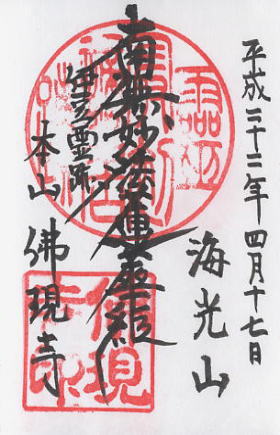 平成二十二年四月十七日
海光山
南無妙法蓮華経
伊豆霊跡
本山 佛現寺
佛現寺印